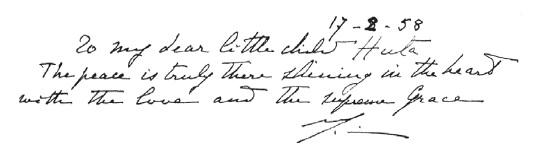 17-2-58
To my dear little child Huta
The peace is truly there shining in the heart
with the love and the supreme Grace